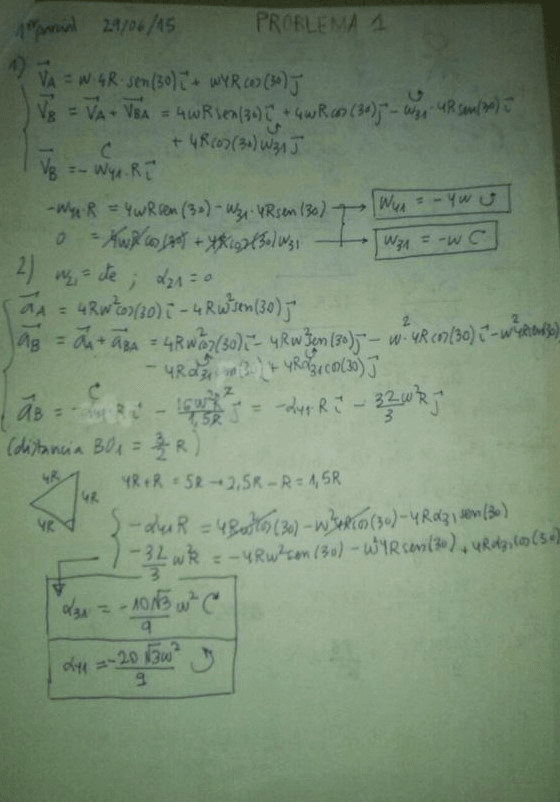 1er parcial 29/06/15 PROBLEMA 1
1) V⃗A = w·4R·sen(30) i⃗ + w4R cos(30) j⃗
V⃗B = V⃗A + V⃗BA = 4wR sen(30) i⃗ + 4wR cos(30) j⃗ - w31·4R sen(30) i⃗
+ 4R cos(30) w31 j⃗
V⃗B = - w41·R i⃗
-w41·R = 4wR sen(30) - w31·4R sen(30) → w41 = -4w ↺
0 = 4wR cos(30) + 4R cos(30) w31 → w31 = -w C
2) w21 = cte ; α21 = 0
a⃗A = 4Rw² cos(30) i⃗ - 4Rw² sen(30) j⃗
a⃗B = a⃗A + a⃗BA = 4Rw² cos(30) i⃗ - 4Rw² sen(30) j⃗ - w²·4R cos(30) i⃗ - w²4R sen(30) j⃗
- 4Rα31 sen(30) i⃗ + 4Rα31 cos(30) j⃗
a⃗B = -α41·R i⃗ - 16w²R²/1,5R j⃗ = -α41·R i⃗ - 32/3 w²R j⃗
(distancia BO1 = 3/2 R)
4R 4R 4R 4R+R = 5R → 2,5R - R = 1,5R
-α41R = 4Rw² cos(30) - w²4R cos(30) - 4Rα31 sen(30)
-32/3 w²R = -4Rw² sen(30) - w²4R sen(30) + 4Rα31 cos(30)
α31 = -10√3/9 w² C
α41 = -20√3w²/9 ↺